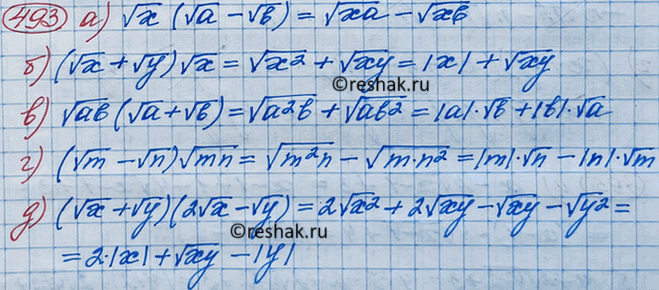 493 а) √x (√a − √b) = √xa − √xb
б) (√x + √y) √x = √x² + √xy = |x| + √xy
©reshak.ru
в) √ab (√a + √b) = √a²b + √ab² = |a|·√b + |b|·√a
г) (√m − √n) √mn = √m²n − √m·n² = |m|·√n − |n|·√m
д) (√x + √y)(2√x − √y) = 2√x² + 2√xy − √xy − √y² =
©reshak.ru
= 2·|x| + √xy − |y|